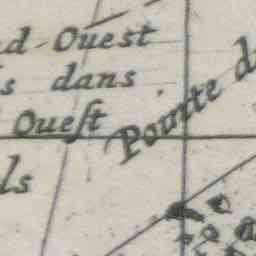 d-Ouest
s dans
Oueſt
ls
Pointe d